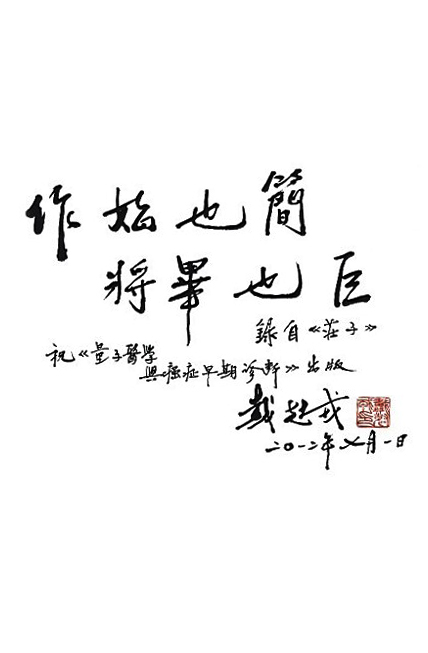 作始也簡
將畢也巨
錄自《莊子》
祝《量子醫學
與癌症早期诊斷》出版
戴起戎
二〇一二年七月一日